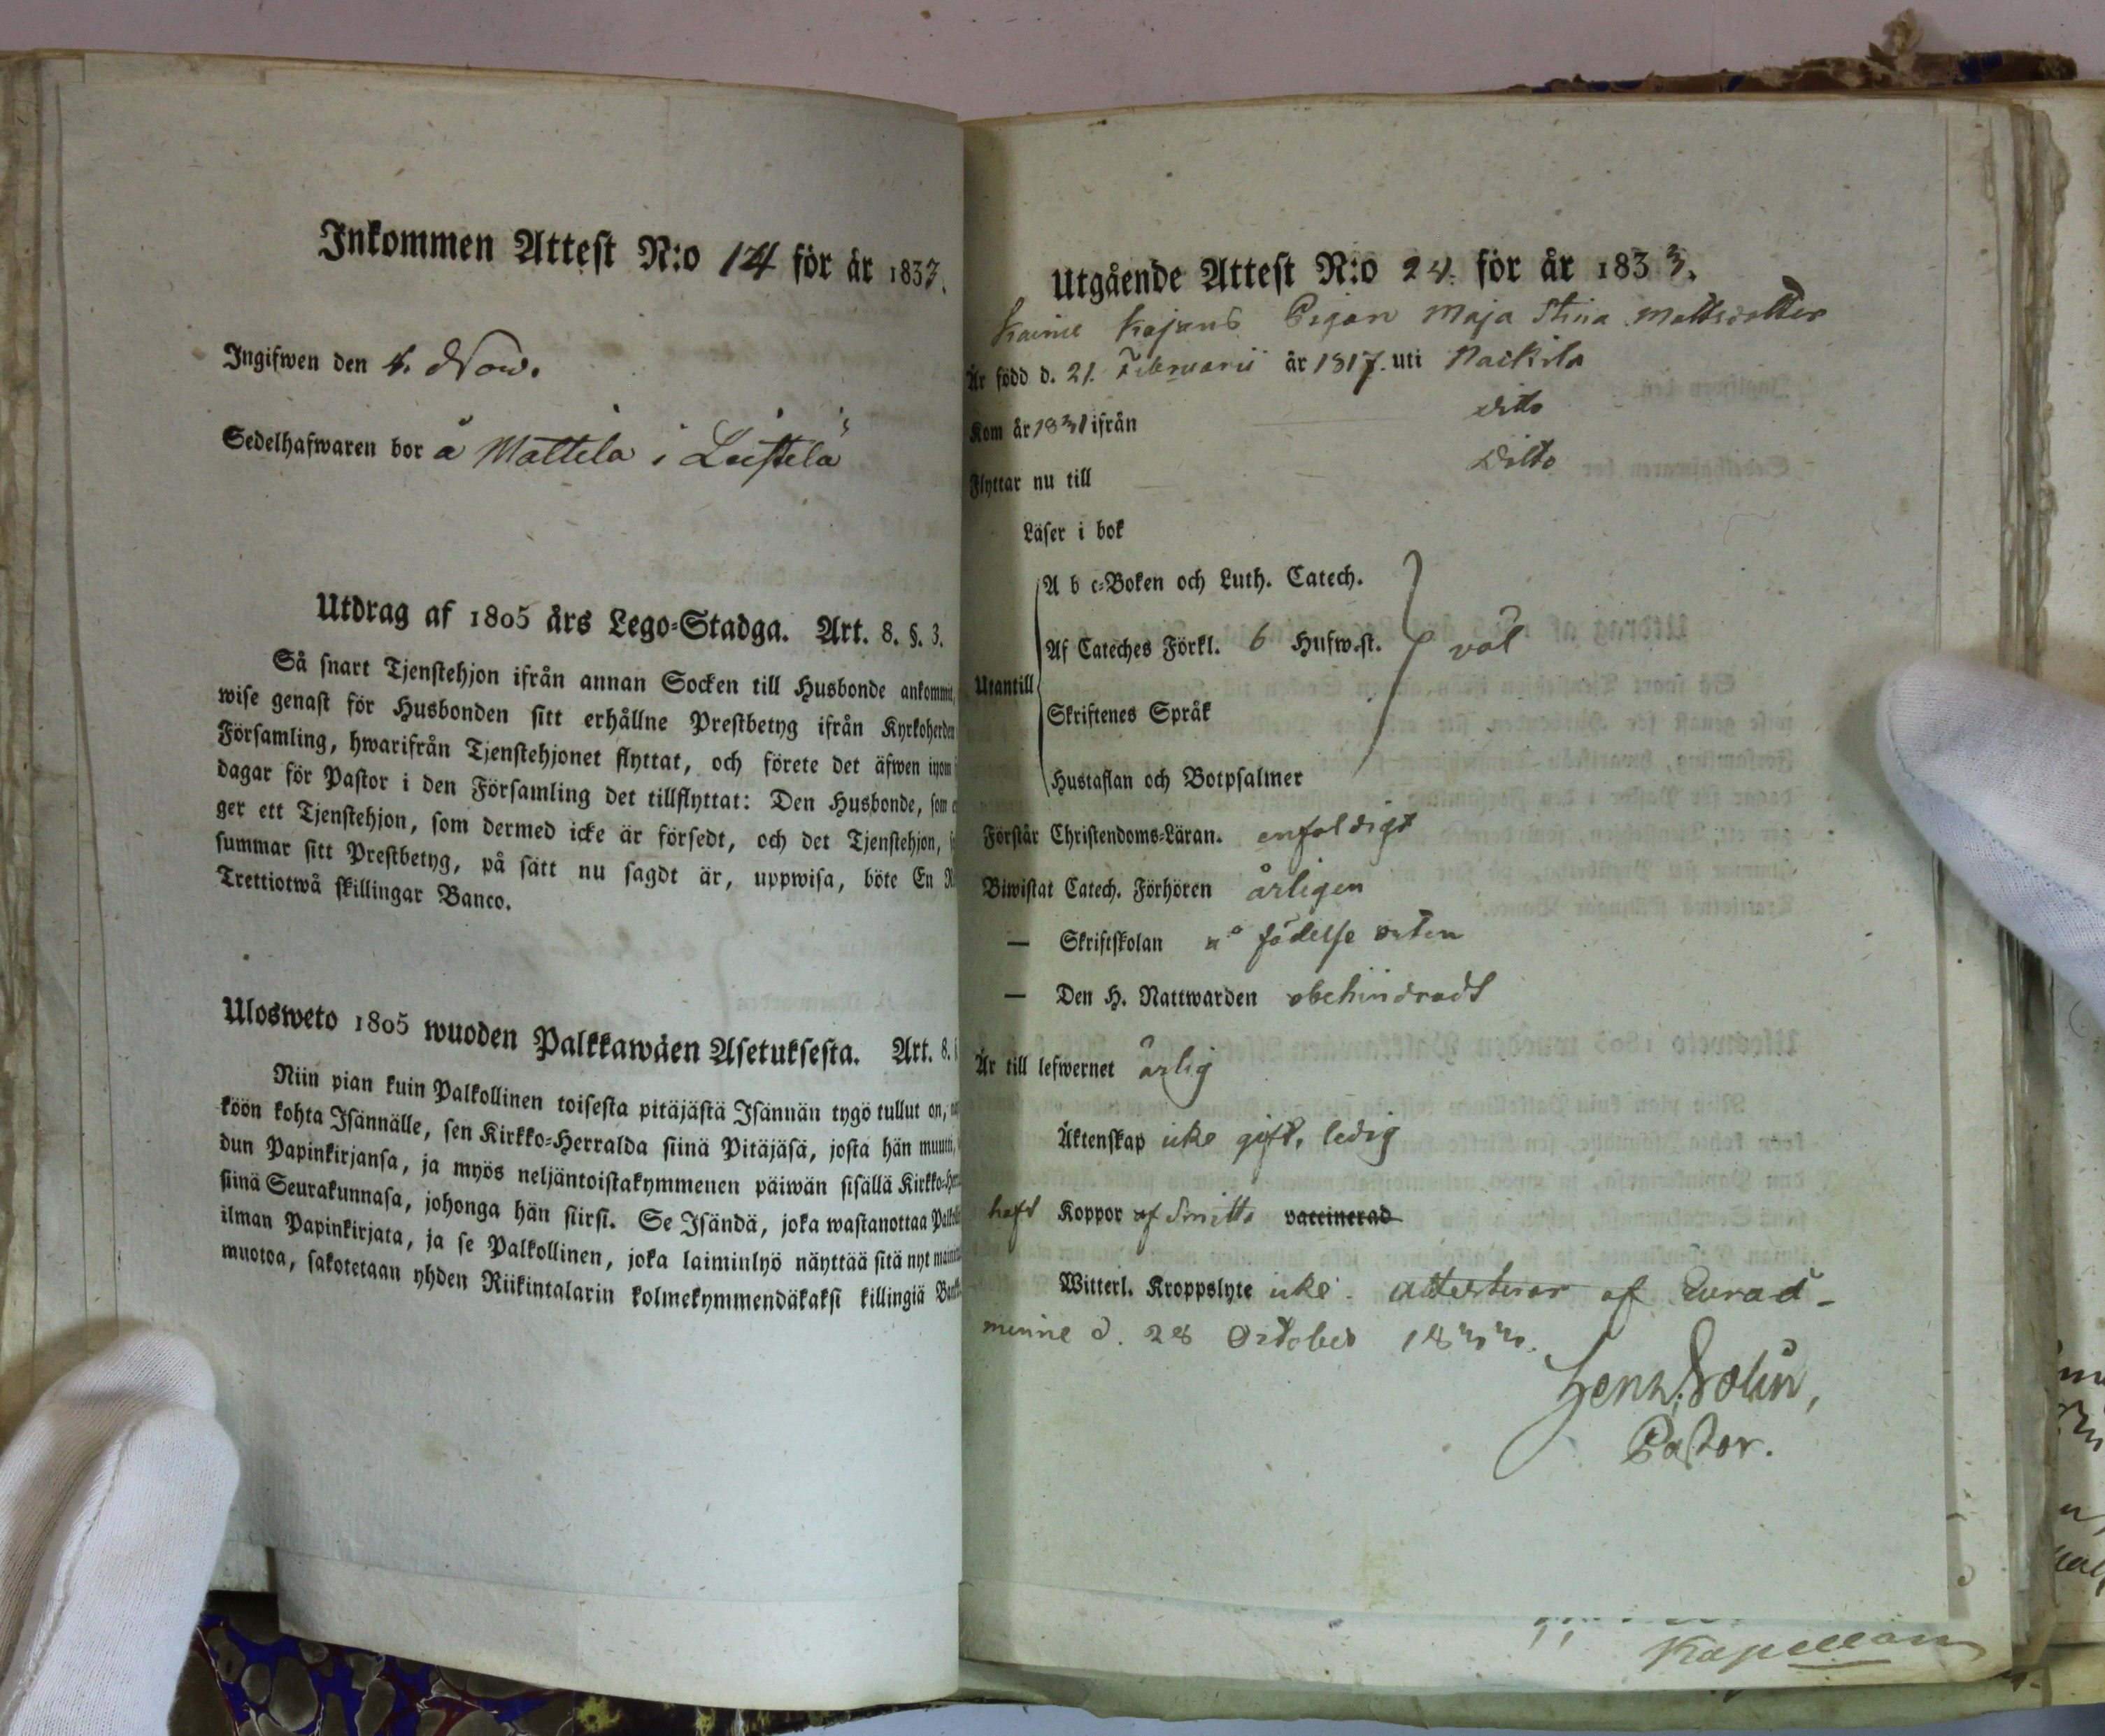 Inkommen Attest N:o 124 för år 1833.
Ingifwen den 4. Nov.
Sedelhafwaren bor å Mattila i Leistilä
Utdrag af 1805 års Lego-Stadga. Art. 8. §. 3.
Så snart Tjenstehjon ifrån annan Socken till Husbonde ankommit,
wise genast för Husbonden sitt erhållne Prestbetyg ifrån Kyrkoherden
Församling, hwarifrån Tjenstehjonet flyttat, och förete det äfwen inom
dagar för Pastor i den Församling det tillflyttat: Den Husbonde, som
ger ett Tjenstehjon, som dermed icke är försedt, och det Tjenstehjon,
summar sitt Prestbetyg, på sätt nu sagdt är, uppwisa, böte En
Trettiotwå skillingar Banco.
Ulosweto 1805 wuoden Palkkawäen Asetuksesta. Art. 8.
Niin pian kuin Palkollinen toisesta pitäjästä Isännän tygö tullut on,
köön kohta Isännälle, sen Kirkko-Herralda siinä Pitäjäsä, josta hän muutti,
dun Papinkirjansa, ja myös neljäntoistakymmenen päiwän sisällä Kirkko-Her
siinä Seurakunnasa, johonga hän siirsi. Se Isändä, joka wastanottaa
ilman Papinkirjata, ja se Palkollinen, joka laiminlyö näyttää sitä nyt
muotoa, sakotetaan yhden Riikintalarin kolmekymmendäkaksi killingiä
Utgående Attest N:o 24. för år 1833.
Pigan Maja Stina Mattsdotter
Är född d. 21. Februarii år 1817. uti Nackila
Kom år 1831 ifrån ditto
Flyttar nu till Ditto
Läser i bok
Utantill
A b c-Boken och Luth. Catech.
Af Cateches Förkl. 6 Hufwst. väl
Skriftenes Språk
Hustaflan och Botpsalmer
Förstår Christendoms-Läran. enfaldigt
Biwistat Catech. Förhören årligen
— Skriftskolan å födelse orten
— Den H. Nattwarden obehindradt
Är till lefwernet ärlig
Äktenskap icke gift, ledig
haft Koppor af Smitta vaccinerad
Witterl. Kroppslyte icke. attesterar af Eurad-
minne d. 28 October 1833.
Pastor.
Kapellan